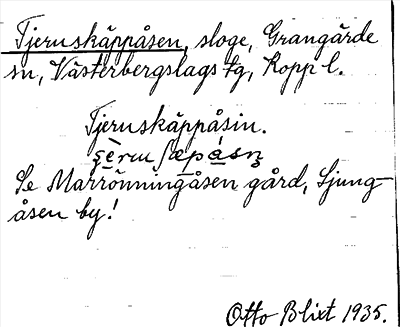 Tjeruskäppåsen, sloge, Grangärde
sn, Västerbergslags tg, Kopp l.
Tjeruskäppåsin.
Se Marrönningåsen gård, Ljung-
åsen by!
Otto Blixt 1935.